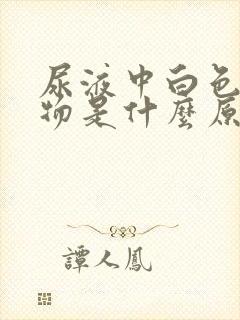 尿液中白色
物是什麼原
譚人鳳